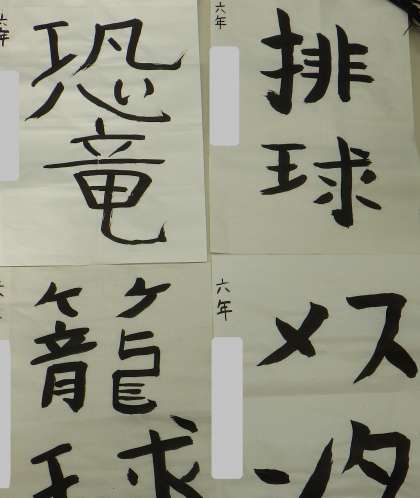 恐竜
六年
排球
六年
籠球
スタ
メン
六年